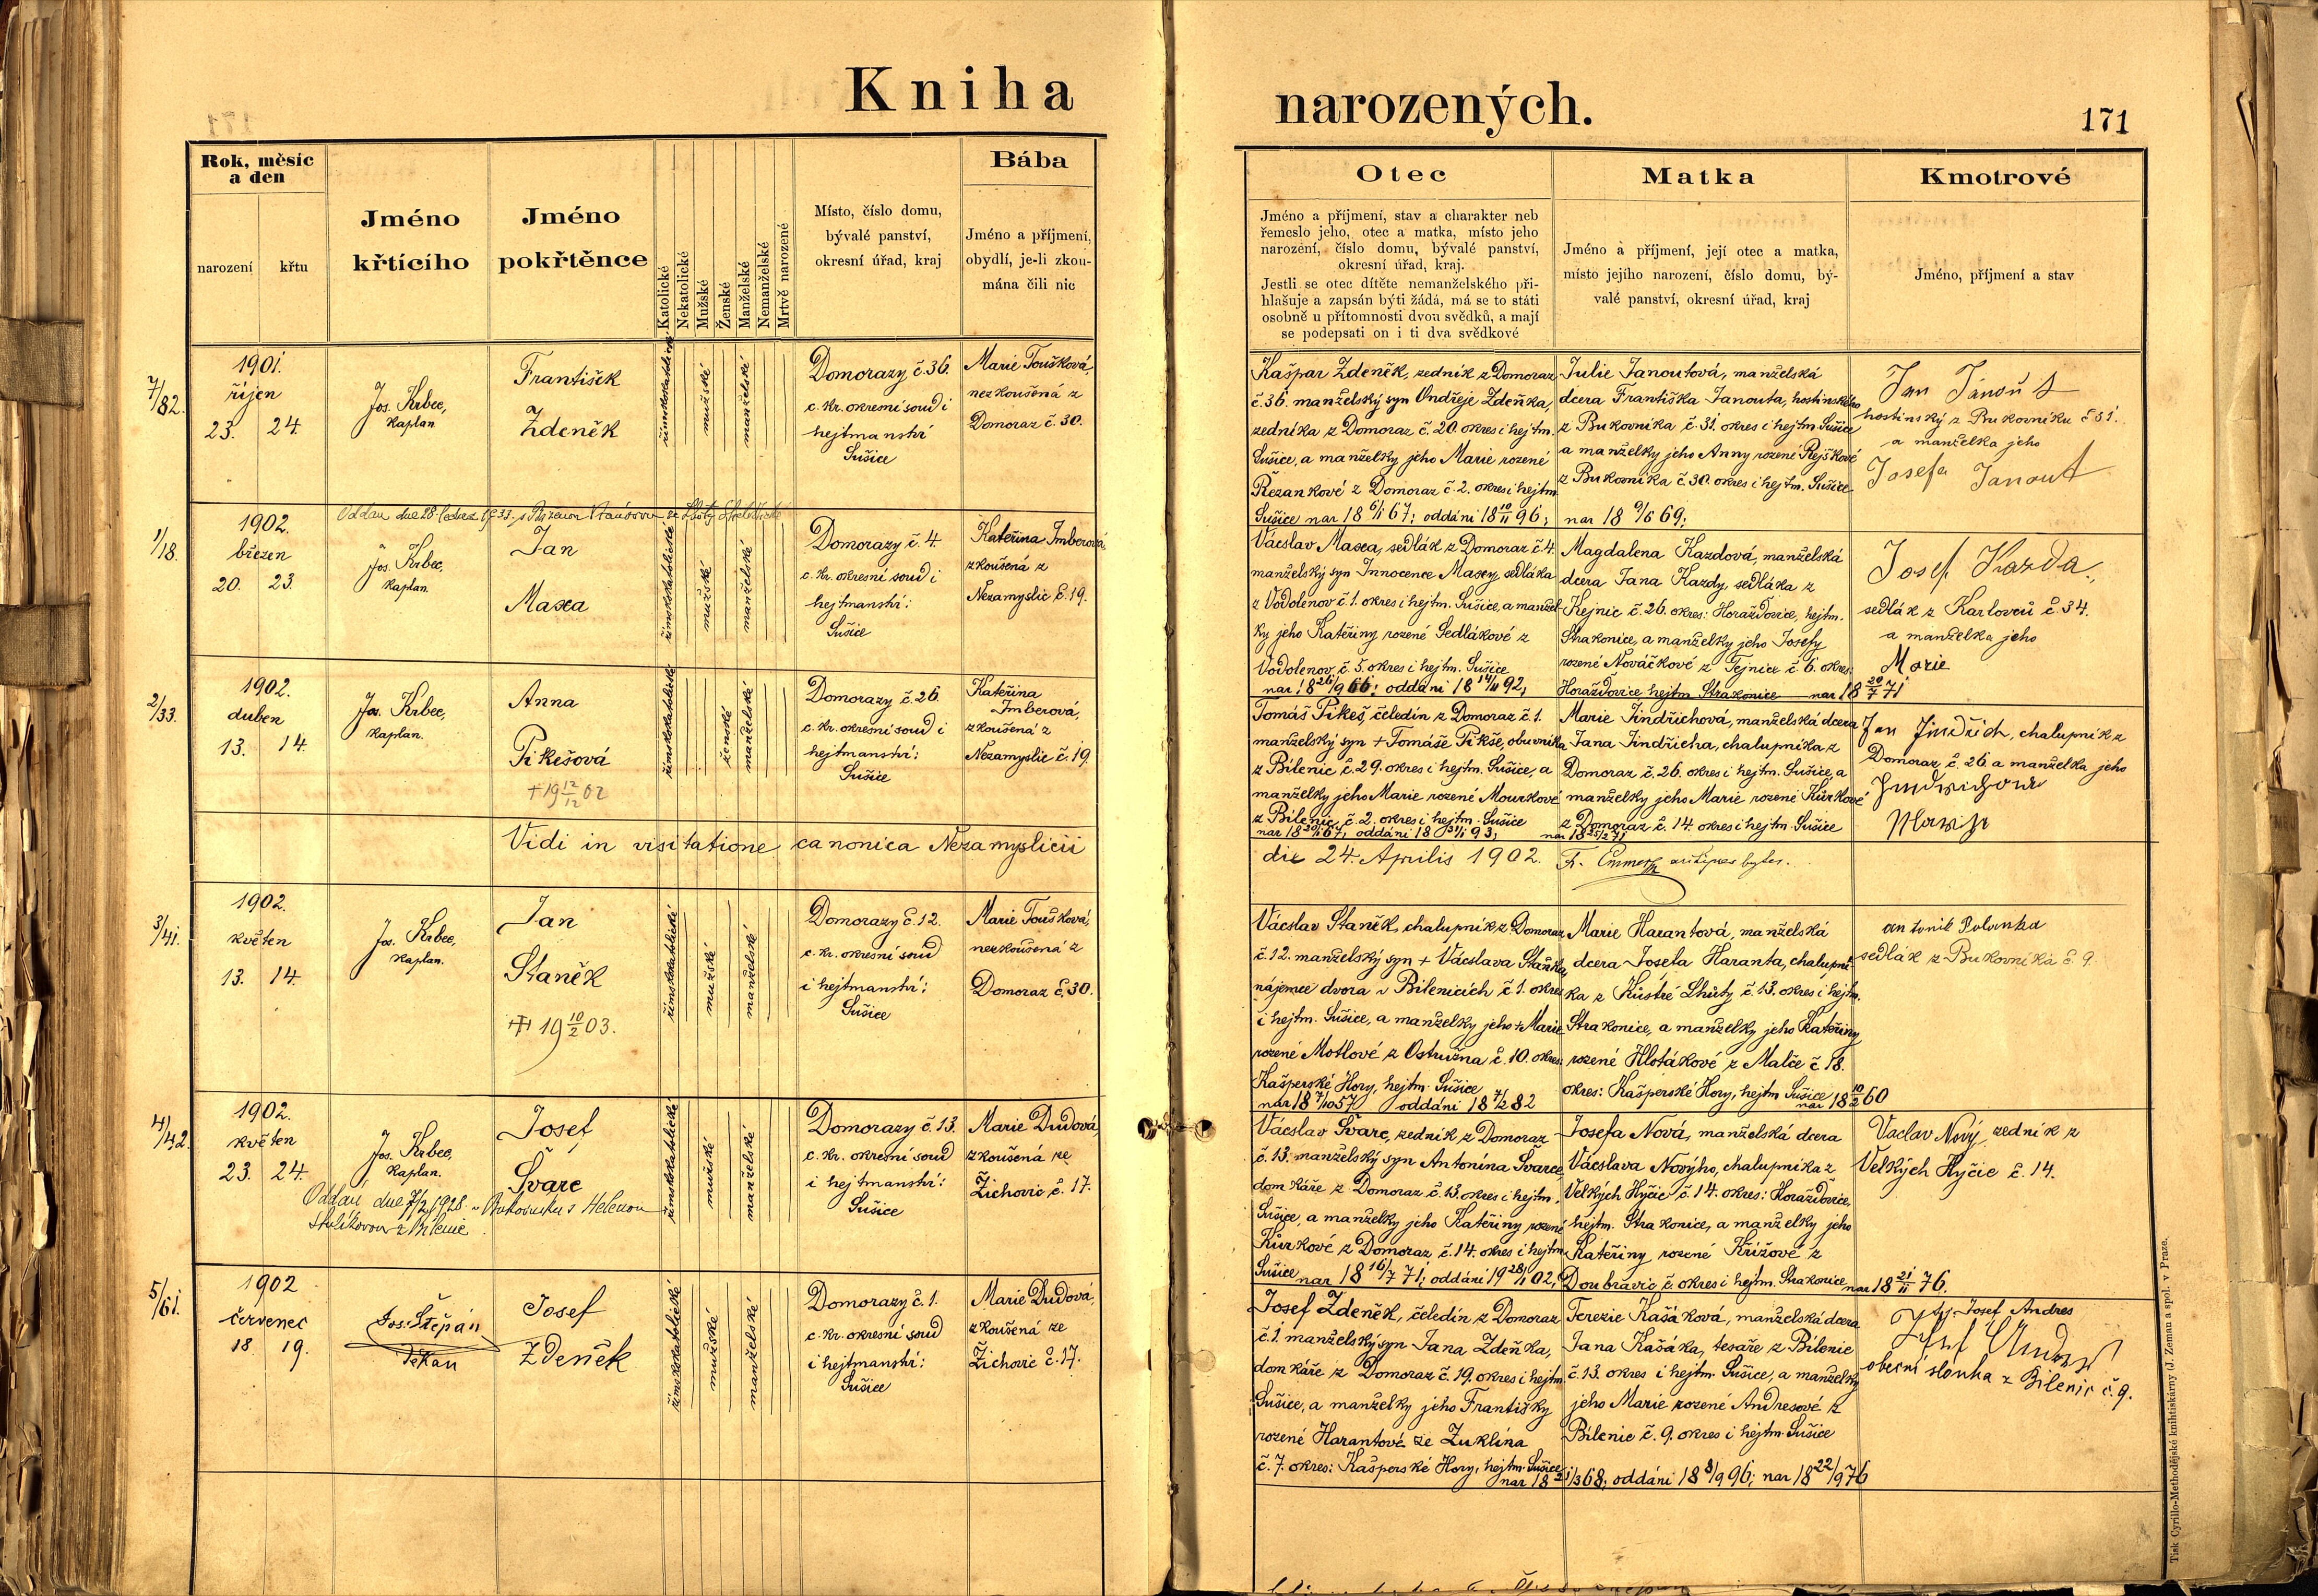 Kniha narozených.
171
Rok, měsíc
a den
narození
křtu
Jméno
křtícího
Jméno
pokřtěnce
Katolické
Nekatolické
Mužské
Ženské
Manželské
Nemanželské
Mrtvě narozené
Místo, číslo domu,
bývalé panství,
okresní úřad, kraj
Bába
Jméno a příjmení,
obydlí, je-li zkou-
mána čili nic
Otec
Jméno a příjmení, stav a charakter neb
řemeslo jeho, otec a matka, místo jeho
narození, číslo domu, bývalé panství,
okresní úřad, kraj.
Jestli se otec dítěte nemanželského při-
hlašuje a zapsán býti žádá, má se to státi
osobně u přítomnosti dvou svědků, a mají
se podepsati on i ti dva svědkové
Matka
Jméno a příjmení, její otec a matka,
místo jejího narození, číslo domu, bý-
valé panství, okresní úřad, kraj
Kmotrové
Jméno, příjmení a stav
7/82.
1901.
říjen
23. 24.
Jos. Krbec,
kaplan
František
Zdeněk
římskokatolické
mužské
manželské
Domorazy č. 36.
c. kr. okresní soud i
hejtmanství
Sušice
Marie Toušková,
nezkoušená z
Domoraz č. 30.
Kašpar Zdeněk, zedník z Domoraz
č. 36. manželský syn Ondřeje Zdeňka,
zedníka z Domoraz č. 20. okres i hejtm.
Sušice, a manželky jeho Marie rozené
Řezankové z Domoraz č. 2. okres i hejtm
Sušice nar 18 6/1 67; oddáni 18 10/11 96;
Julie Janoutová, manželská
dcera Františka Janouta, hostinského
z Bukovníka č. 31. okres i hejtm. Sušice
a manželky jeho Anny rozené Rejškové
z Bukovníka č. 30. okres i hejtm. Sušice
nar 18 9/6 69;
Jan Janout
hostinský z Bukovníku č 31.
a manželka jeho
Josefa Janout
1/18.
1902.
březen
20. 23.
Jos. Krbec,
kaplan.
Jan
Maxa
římskokatolické
mužské
manželské
Domorazy č. 4.
c. kr. okresní soud i
hejtmanství:
Sušice
Kateřina Imberová
zkoušená z
Nezamyslic č. 19.
Vácslav Maxa, sedlák z Domoraz č. 4.
manželský syn Innocence Maxy sedláka
z Vodolenov č. 1. okres i hejtm. Sušice, a manžel-
ky jeho Kateřiny rozené Sedlákové z
Vodolenov č. 5. okres i hejtm. Sušice
nar 18 26/9 66; oddáni 18 14/11 92;
Magdalena Kazdová, manželská
dcera Jana Kazdy, sedláka z
Kejnic č. 26. okres: Horažďovice, hejtm.
Strakonice, a manželky jeho Josefy
rozené Nováčkové z Tejnice č. 6. okres:
Horažďovice hejtm Strakonice nar 18 20/7 71
Josef Kazda,
sedlák z Karlovců č 34.
a manželka jeho
Marie
2/33.
1902.
duben
13. 14.
Jos. Krbec,
kaplan.
Anna
Pikešová
+ 19 12/12 02
římskokatolické
ženské
manželské
Domorazy č. 26.
c. kr. okresní soud i
hejtmanství:
Sušice
Kateřina
Imberová,
zkoušená z
Nezamyslic č. 19.
Tomáš Pikeš, čeledín z Domoraz č. 1.
manželský syn + Tomáše Pikše, obuvníka
z Bílenic č. 29. okres i hejtm. Sušice, a
manželky jeho Marie rozené Mourkové
z Bílenic č. 2. okres i hejtm. Sušice
Marie Jindřichová, manželská dcera
Jana Jindřicha, chalupníka z
Domoraz č. 26. okres i hejtm. Sušice, a
manželky jeho Marie rozené Kůrkové
z Domoraz č. 14. okres i hejtm. Sušice
Jan Jindřich, chalupník z
Domoraz č. 26 a manželka jeho
Vidi in visitatione canonica Nezamyslicii
die 24. Aprilis 1902.
3/41.
1902.
květen
13. 14.
Jos. Krbec,
kaplan.
Jan
Staněk
19 10/2 03.
římskokatolické
mužské
manželské
Domorazy č. 12.
c. kr. okresní soud
i hejtmanství:
Sušice
Marie Toušková,
nezkoušená z
Domoraz č. 30.
Vácslav Staněk, chalupník z Domoraz
č. 12. manželský syn + Vácslava Staňka,
nájemce dvora v Bílenicích č. 1. okres
i hejtm. Sušice, a manželky jeho + Marie
rozené Motlové z Ostružna č. 10. okres:
Kašperské Hory, hejtm. Sušice
nar 18 7/10 57 oddáni 18 7/2 82
Marie Harantová, manželská
dcera Josefa Haranta, chalupní-
ka z Kůstré Lhůty č. 13. okres i hejtm.
Strakonice, a manželky jeho Kateřiny
rozené Hlotákové z Malče č 18.
okres: Kašperské Hory, hejtm Sušice nar 18 10/2 60
sedlák z Bukovníka č 9.
4/42
1902.
květen
23. 24.
Jos. Krbec,
kaplan.
Josef
Švarc
římskokatolické
mužské
manželské
Domorazy č. 13.
c. kr. okresní soud
i hejtmanství:
Sušice
Marie Dudová,
zkoušená ze
Žichovic č. 17.
Vácslav Švarc, zedník z Domoraz
č. 13. manželský syn Antonína Švarce,
domkáře z Domoraz č. 13. okres i hejtm.
Sušice, a manželky jeho Kateřiny, rozené
Kůrkové z Domoraz č. 14. okres i hejtm
Sušice nar 18 16/7 71; oddáni 19 28/1 02;
Josefa Nová, manželská dcera
Vácslava Nového, chalupníka z
Velkých Hyčic č. 14. okres: Horažďovice,
hejtm. Strakonice, a manželky jeho
Kateřiny rozené Křížové z
Doubravic č. okres i hejtm. Strakonice nar 18 21/11 76.
Vaclav Nový, zedník z
Velkých Hyčic č. 14.
5/61.
1902
červenec
18 19.
Jos. Štěpán
děkan
Josef
Zdeněk
římskokatolické
mužské
manželské
Domorazy č. 1.
c. kr. okresní soud
i hejtmanství:
Sušice
Marie Dudová,
zkoušená ze
Žichovic č. 17.
Josef Zdeněk, čeledín z Domoraz
č. 1. manželský syn Jana Zdeňka,
domkáře z Domoraz č. 19. okres i hejtm.
Sušice, a manželky jeho Františky
rozené Harantové ze Zuklína
č. 7. okres: Kašperské Hory, hejtm. Sušice
oddáni 18 8/9 96; nar 18 22/9 76
Terezie Kašáková, manželská dcera
Jana Kašáka, tesaře z Bílenic
č. 13. okres i hejtm. Sušice, a manželky
jeho Marie rozené Andresové z
Bílenic č. 9. okres i hejtm. Sušice
Josef Andres
obecní sloužka z Bílenic č. 9.
Tisk Cyrillo-Methodějské knihtiskárny (J. Zeman a spol. v Praze.